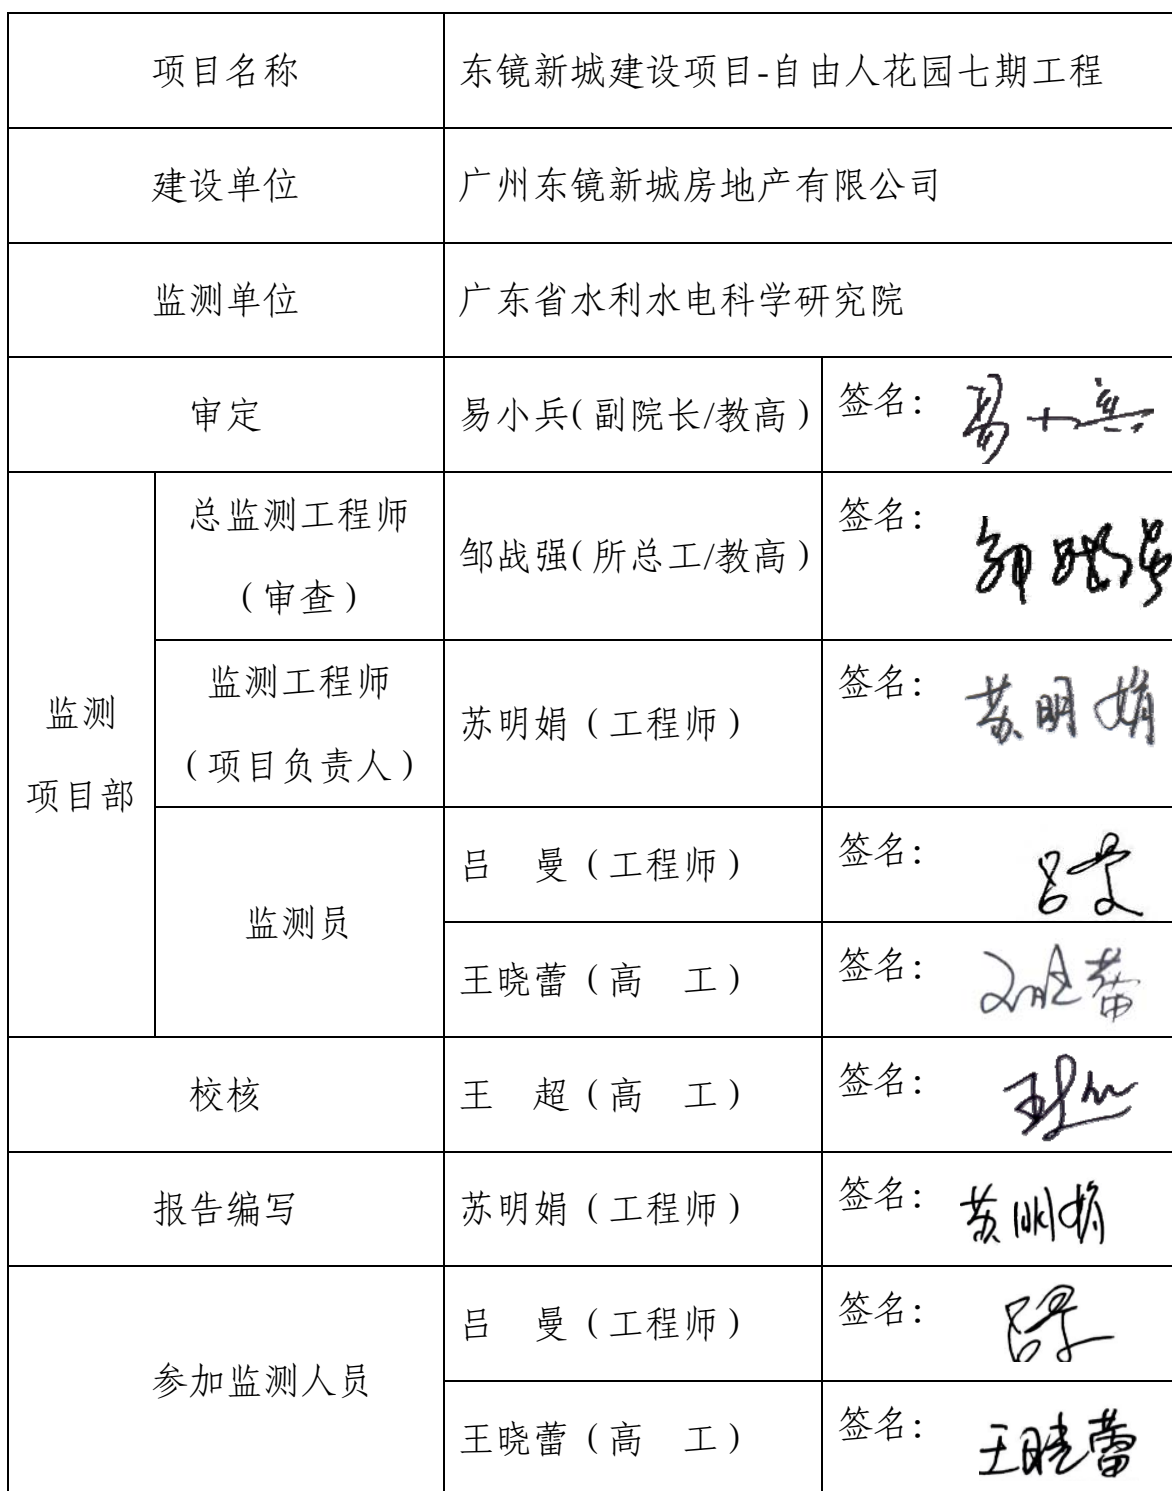 项目名称
东镜新城建设项目-自由人花园七期工程
建设单位
广州东镜新城房地产有限公司
监测单位
广东省水利水电科学研究院
审定
易小兵(副院长/教高)
签名: 易小兵
监测
项目部
总监测工程师
(审查)
邹战强(所总工/教高)
签名: 邹战强
监测工程师
(项目负责人)
苏明娟(工程师)
签名: 苏明娟
监测员
吕 曼(工程师)
签名: 吕曼
王晓蕾(高 工)
签名: 王晓蕾
校核
王 超(高 工)
签名: 王超
报告编写
苏明娟(工程师)
签名: 苏明娟
参加监测人员
吕 曼(工程师)
签名: 吕曼
王晓蕾(高 工)
签名: 王晓蕾